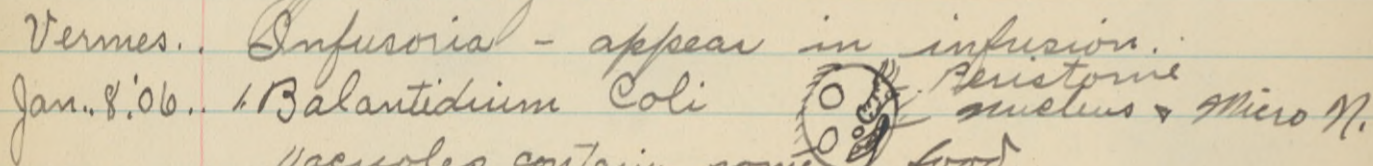 Vermes.. Infusoria - appear in infusion.
Peristome
Jan. 8. '06.. 1. Balantidium Coli nucleus & Micro N.
Vacuoles contain some food